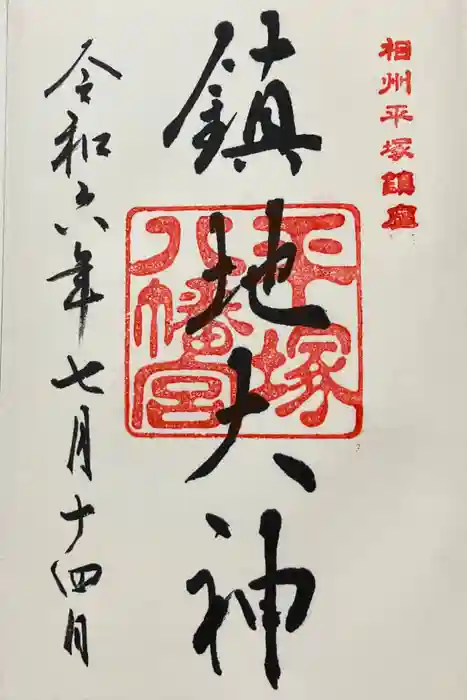 相州平塚鎮座
鎮地大神
平塚
八幡宮
令和六年七月十四日